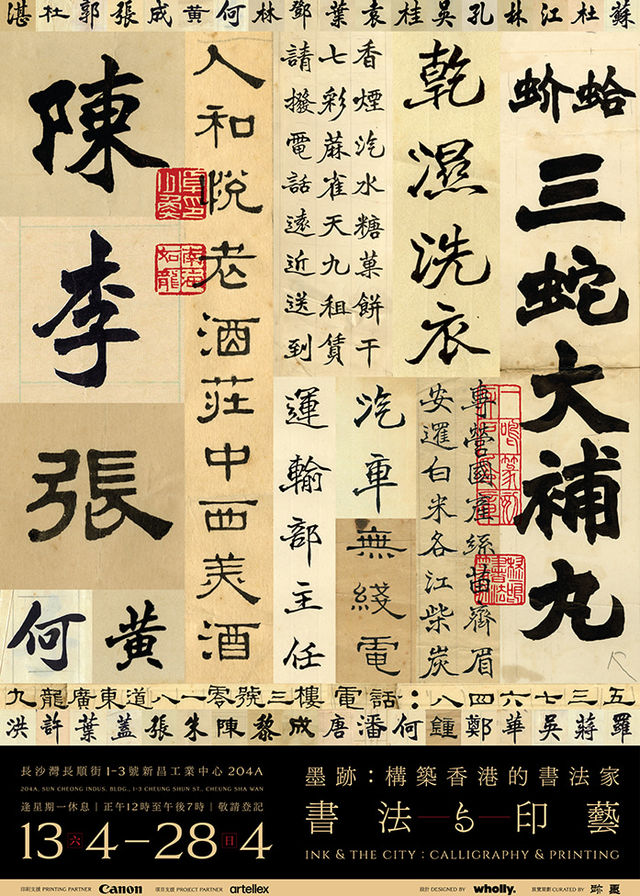 湛杜郭張成黃何林鄧葉袁桂吳孔林江杜蘇
蚧蛤三蛇大補丸
乾濕洗衣
香煙汽水糖菓餅干
七彩蔴雀天九租賃
請撥電話遠近送到
人和悅老酒莊中西美酒
陳
李
張
何
黃
專營國產絲苗齊眉
安暹白米各江柴炭
汽車
無綫電
運輸部主任
九龍廣東道八一零號三樓電話：八四六七三五
洪許葉蓋張朱陳黎成唐潘何鍾鄭華吳蔣羅
長沙灣長順街1-3號新昌工業中心204A
204A, SUN CHEONG INDUS. BLDG., 1-3 CHEUNG SHUN ST., CHEUNG SHA WAN
逢星期一休息｜正午12時至午後7時｜敬請登記
13六4—28日4
墨跡：構築香港的書法家
書法—与—印藝
INK & THE CITY : CALLIGRAPHY & PRINTING
印刷支援 PRINTING PARTNER Canon 項目支援 PROJECT PARTNER artellex 設計 DESIGNED BY wholly. 展覽策劃 CURATED BY